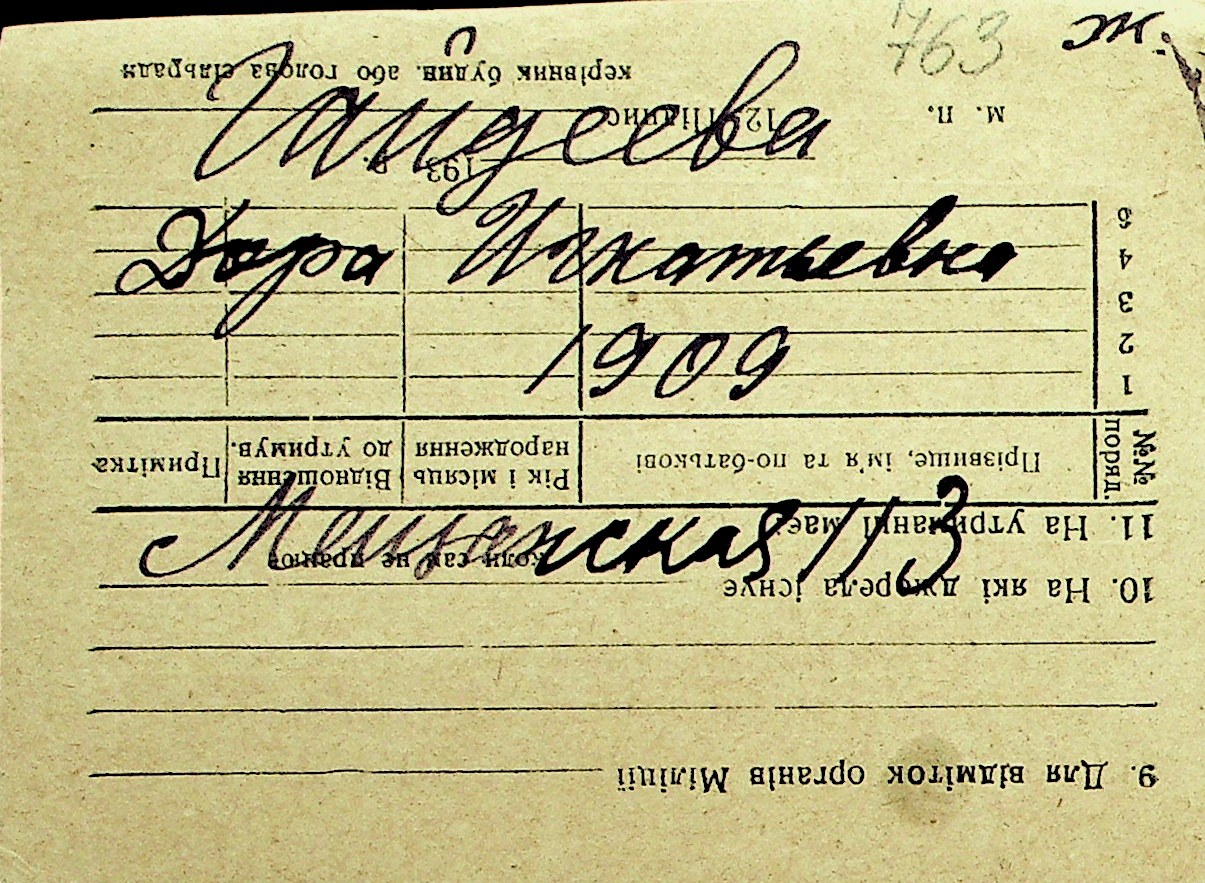 763 ж.
Гайдеева
Дора Игнатьевна
1909
Мещанская 113
9. Для відміток органів Міліції
10. На які джерела існує
коли сам не працює
11. На утриманні має:
№№ поряд. Прізвище, ім'я та по-батькові Рік і місяць народження Відношення до утримув. Примітка
1
2
3
4
5
193 р.
м. п. 12. Підпис
керівник будів. або голова сільради